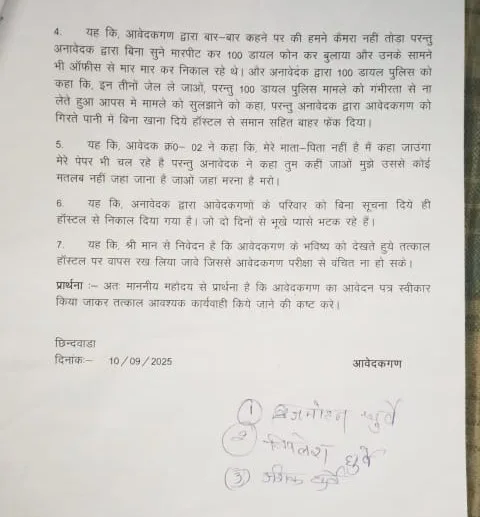 4. यह कि, आवेदकगण द्वारा बार–बार कहने पर की हमने कैमरा नहीं तोडा परन्तु
अनावेदक द्वारा बिना सुने मारपीट कर 100 डायल फोन कर बुलाया और उनके सामने
भी ऑफीस से मार मार कर निकाल रहे थे। और अनावेदक द्वारा 100 डायल पुलिस को
कहा कि, इन तीनों जेल ले जाओं, परन्तु 100 डायल पुलिस मामले को गंभीरता से ना
लेते हुआ आपस मे मामले को सुलझाने को कहा, परन्तु अनावेदक द्वारा आवेदकगण को
गिरते पानी में बिना खाना दिये हॉस्टल से समान सहित बाहर फेंक दिया।
5. यह कि, आवेदक क्र0– 02 ने कहा कि, मेरे माता–पिता नही है मैं कहा जाउंगा
मेरे पेपर भी चल रहे है परन्तु अनावेदक ने कहा तुम कहीं जाओं मुझे उससे कोई
मतलब नहीं जहा जाना है जाओं जहा मरना है मरो।
6. यह कि, अनावेदक द्वारा आवेदकगणों के परिवार को बिना सूचना दिये ही
हॉस्टल से निकाल दिया गया है। जो दो दिनों से भूखे प्यासे भटक रहे हैं।
7. यह कि, श्री मान से निवेदन है कि आवेदकगण के भविष्य को देखते हुये तत्काल
हॉस्टल पर वापस रख लिया जावे जिससे आवेदकगण परीक्षा से वंचित ना हो सकें।
प्रार्थना :– अतः माननीय महोदय से प्रार्थना है कि आवेदकगण का आवेदन पत्र स्वीकार
किया जाकर तत्काल आवश्यक कार्यवाही किये जाने की कष्ट करे।
छिन्दवाडा
दिनांक:– 10/09/2025 आवेदकगण
① धुर्वे
② धुर्वे
③ धुर्वे